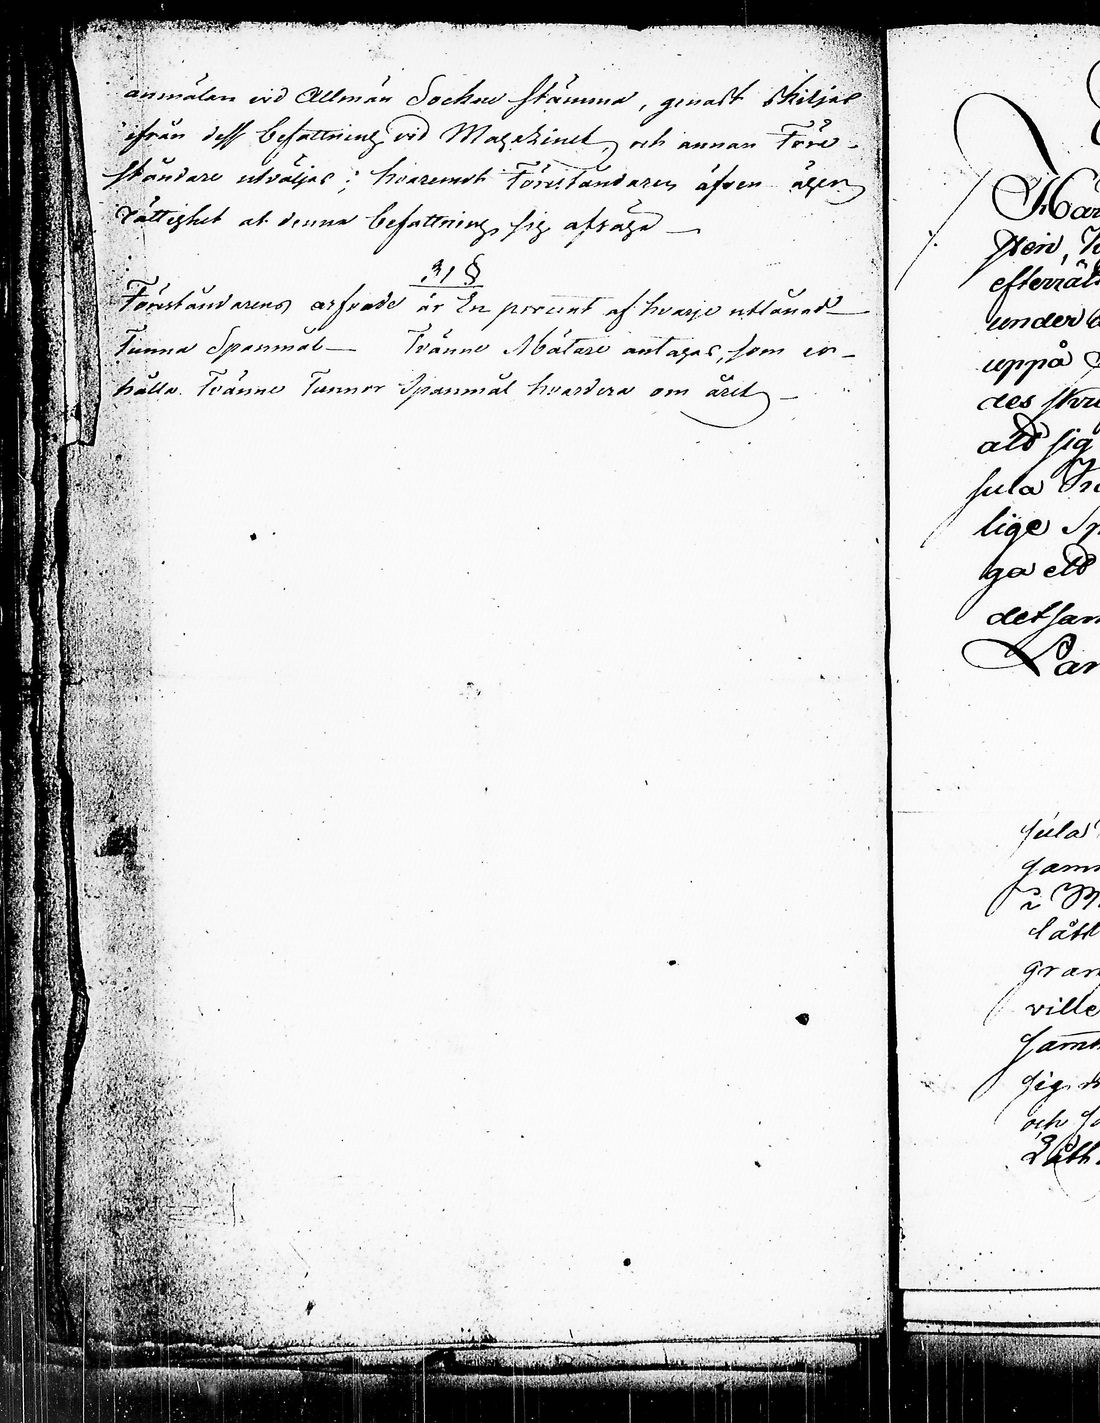 anmälan vid Allmän Sockne stämma, genast skiljas
ifrån dess befattning vid Magazinet, och annan Före-
ståndare utväljas; hvaremot Föreståndaren äfven äger
rättighet at denna befattning sig afsäga —
31 §
Föreståndarens arfvode är En procent af hvarje utlånad
Tunna Spanmål — Tvänne Mätare antagas, som er-
hålla Tvänne Tunnor Spanmål hvardera om året —
Har
sten,
efterträd
under
uppå
des
ald sig
jula
lige Sp
ga eld
detsam
Lan
jula
gam
i M
lätt
gran
ville
sam
sig
och